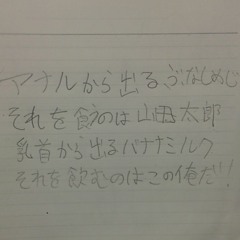 アナルから出るぶなしめじ
それを食うのは山田太郎
乳首から出るバナナミルク
それを飲むのはこの俺だ!